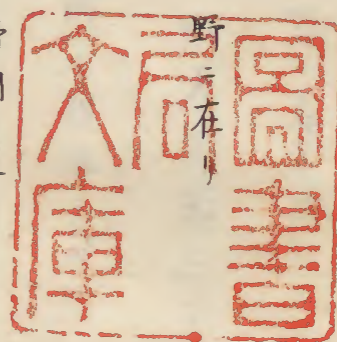 圖書
局
文庫
野ニ在リ